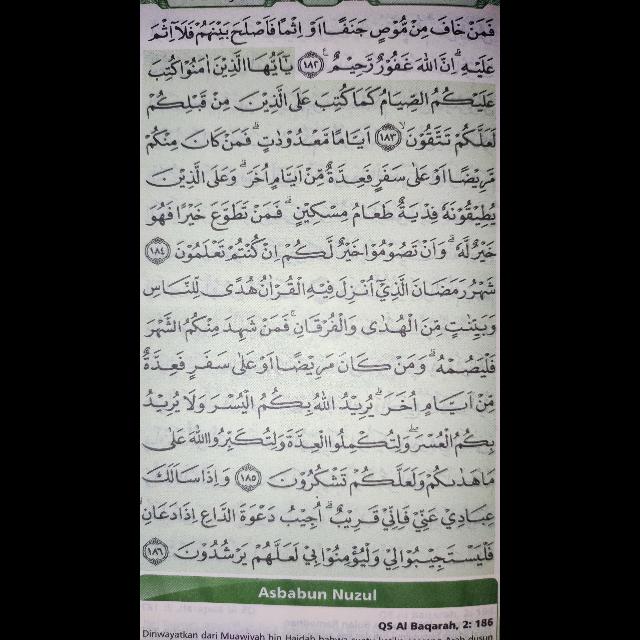 فَمَنْ خَافَ مِنْ مُّوْصٍ جَنَفًا اَوْ اِثْمًا فَاَصْلَحَ بَيْنَهُمْ فَلَآ اِثْمَ
عَلَيْهِ ۗ اِنَّ اللّٰهَ غَفُوْرٌ رَّحِيْمٌ ࣖ ۝١٨٢ يٰٓاَيُّهَا الَّذِيْنَ اٰمَنُوْا كُتِبَ
عَلَيْكُمُ الصِّيَامُ كَمَا كُتِبَ عَلَى الَّذِيْنَ مِنْ قَبْلِكُمْ
لَعَلَّكُمْ تَتَّقُوْنَۙ ۝١٨٣ اَيَّامًا مَّعْدُوْدٰتٍۗ فَمَنْ كَانَ مِنْكُمْ
مَّرِيْضًا اَوْ عَلٰى سَفَرٍ فَعِدَّةٌ مِّنْ اَيَّامٍ اُخَرَ ۗوَعَلَى الَّذِيْنَ
يُطِيْقُوْنَهٗ فِدْيَةٌ طَعَامُ مِسْكِيْنٍۗ فَمَنْ تَطَوَّعَ خَيْرًا فَهُوَ
خَيْرٌ لَّهٗ ۗ وَاَنْ تَصُوْمُوْا خَيْرٌ لَّكُمْ اِنْ كُنْتُمْ تَعْلَمُوْنَ ۝١٨٤
شَهْرُ رَمَضَانَ الَّذِيْٓ اُنْزِلَ فِيْهِ الْقُرْاٰنُ هُدًى لِّلنَّاسِ
وَبَيِّنٰتٍ مِّنَ الْهُدٰى وَالْفُرْقَانِۚ فَمَنْ شَهِدَ مِنْكُمُ الشَّهْرَ
فَلْيَصُمْهُ ۗ وَمَنْ كَانَ مَرِيْضًا اَوْ عَلٰى سَفَرٍ فَعِدَّةٌ
مِّنْ اَيَّامٍ اُخَرَ ۗ يُرِيْدُ اللّٰهُ بِكُمُ الْيُسْرَ وَلَا يُرِيْدُ
بِكُمُ الْعُسْرَ ۖ وَلِتُكْمِلُوا الْعِدَّةَ وَلِتُكَبِّرُوا اللّٰهَ عَلٰى
مَا هَدٰىكُمْ وَلَعَلَّكُمْ تَشْكُرُوْنَ ۝١٨٥ وَاِذَا سَاَلَكَ
عِبَادِيْ عَنِّيْ فَاِنِّيْ قَرِيْبٌ ۗ اُجِيْبُ دَعْوَةَ الدَّاعِ اِذَا دَعَانِۙ
فَلْيَسْتَجِيْبُوْا لِيْ وَلْيُؤْمِنُوْا بِيْ لَعَلَّهُمْ يَرْشُدُوْنَ ۝١٨٦
Asbabun Nuzul
QS Al Baqarah, 2: 186
Diriwayatkan dari Muawiyah bin Haidah bahwa